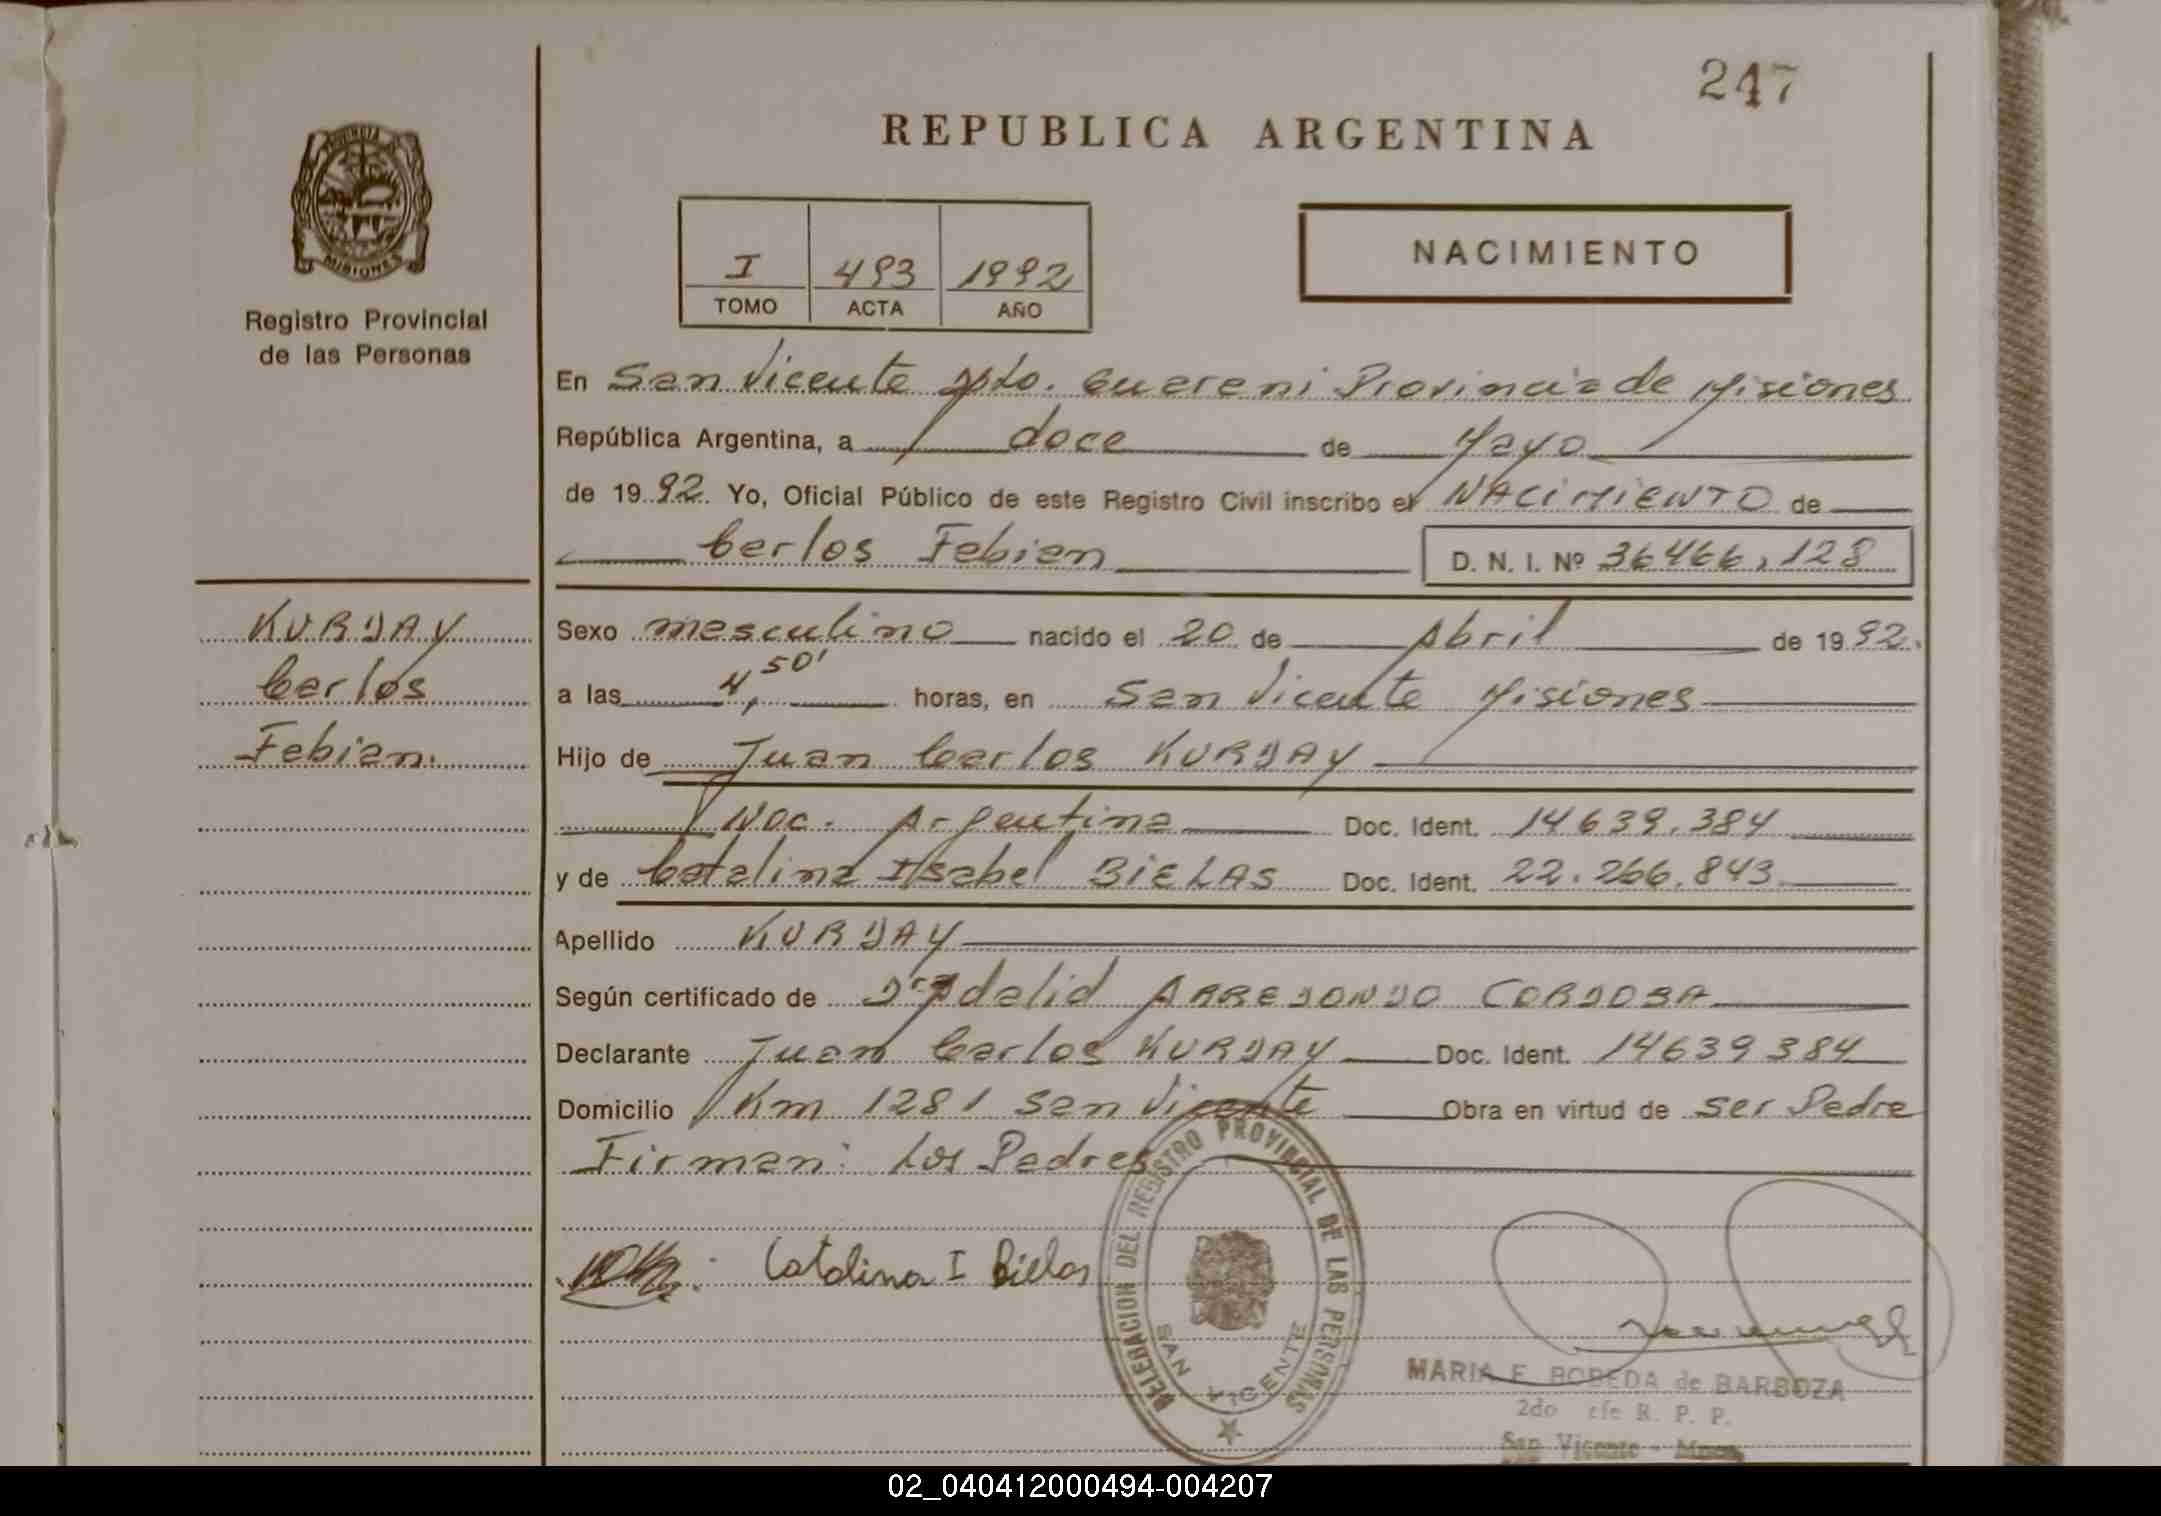 247
REPUBLICA ARGENTINA
MISIONES
Registro Provincial
de las Personas
I 493 1992
TOMO ACTA AÑO
NACIMIENTO
En San Vicente Dpto. Guarani Provincia de Misiones
República Argentina, a doce de Mayo
de 1992. Yo, Oficial Público de este Registro Civil inscribo el NACIMIENTO de
Carlos Fabian D. N. I. Nº 36466,128
KURDAY
Carlos
Fabian.
Sexo masculino nacido el 20 de Abril de 1992.
a las 4,50' horas, en San Vicente Misiones
Hijo de Juan Carlos KURDAY
Nac. Argentina Doc. Ident. 14639.384
y de Catalina Isabel BIELAS Doc. Ident. 22.266.843
Apellido KURDAY
Según certificado de Dr. Adalid ARREDONDO CORDOBA
Declarante Juan Carlos KURDAY Doc. Ident. 14639384
Domicilio Km 1281 San Vicente Obra en virtud de ser Padre
Firman: Los Padres
Catalina I Bielas
DELEGACION DEL REGISTRO PROVINCIAL DE LAS PERSONAS
SAN VICENTE
MARIA E. BOREDA de BARBOZA
2do R. P. P.
San Vicente - Mnes
02_040412000494-004207